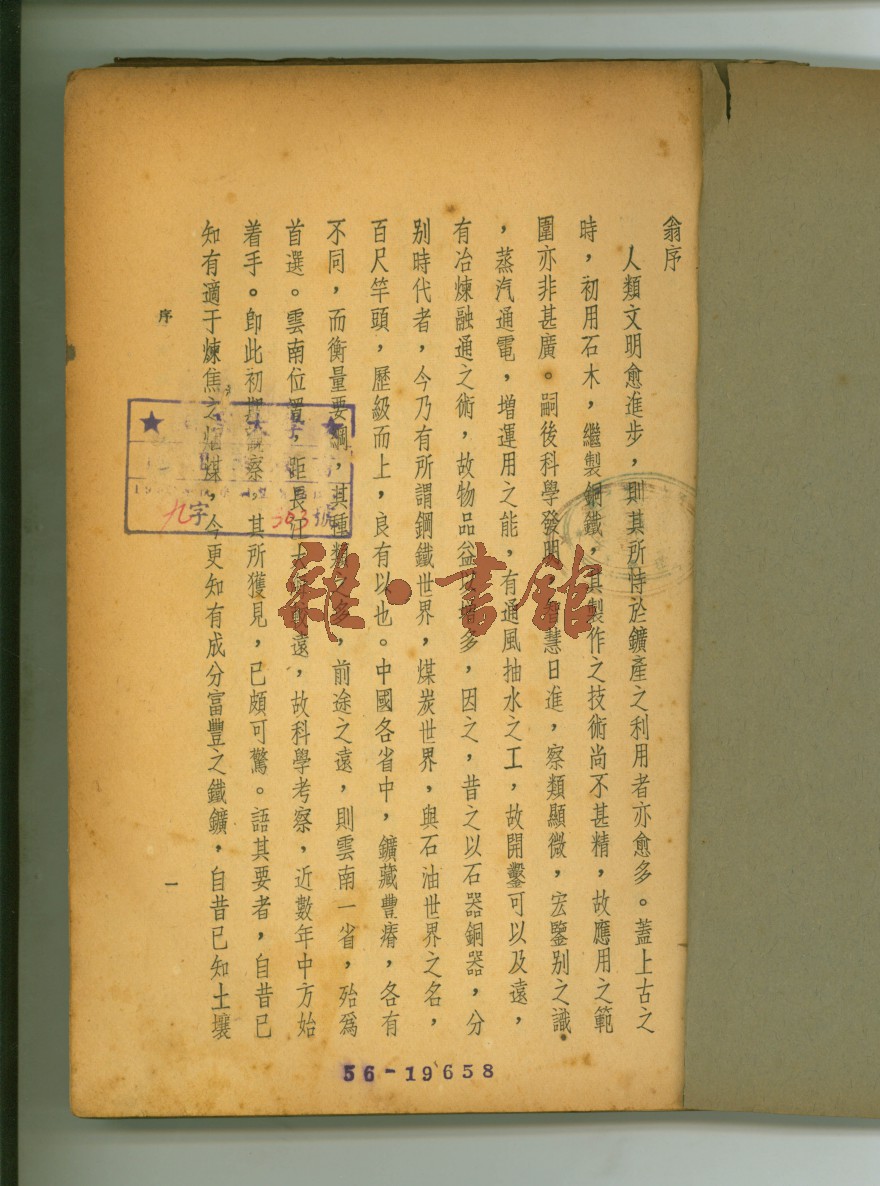 翁序
人類文明愈進步，則其所恃於鑛產之利用者亦愈多。蓋上古之
時，初用石木，繼製銅鐵，其製作之技術尚不甚精，故應用之範
圍亦非甚廣。嗣後科學發明，智慧日進，察類顯微，宏鑒別之識。
，蒸汽通電，增運用之能，有通風抽水之工，故開鑿可以及遠，
有冶煉融通之術，故物品益以增多，因之，昔之以石器銅器，分
別時代者，今乃有所謂鋼鐵世界，煤炭世界，與石油世界之名，
百尺竿頭，歷級而上，良有以也。中國各省中，鑛藏豐瘠，各有
不同，而衡量要綱，其種類之多，前途之遠，則雲南一省，殆爲
首選。雲南位置，距長江大海較遠，故科學考察，近數年中方始
着手。卽此初期觀察，其所獲見，已頗可驚。語其要者，自昔已
知有適于煉焦之烟煤，今更知有成分富豐之鐵鑛，自昔已知土壤
序
一
九字 303號
雜·書館
56-19658